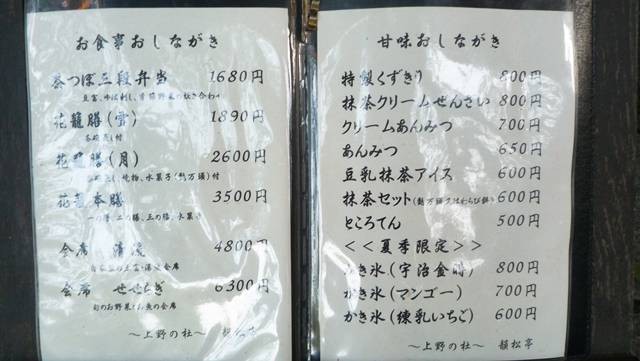 お食事おしながき
茶つぼ三段弁当 1680円
花籠膳(雪) 1890円
茶碗蒸し付
花籠膳(月) 2600円
水菓子(麩万頭)付
本膳 3500円
二の膳、三の膳、水菓子
会席 清流 4800円
会席 せせらぎ 6300円
旬のお野菜とお魚の会席
〜上野の杜〜
甘味おしながき
特製くずきり 800円
抹茶クリームぜんざい 800円
クリームあんみつ 700円
あんみつ 650円
豆乳抹茶アイス 600円
抹茶セット(麩万頭又はわらび餅) 600円
ところてん 500円
<<夏季限定>>
かき氷(宇治金時) 800円
かき氷(マンゴー) 700円
かき氷(練乳いちご) 600円
〜上野の杜〜 韻松亭